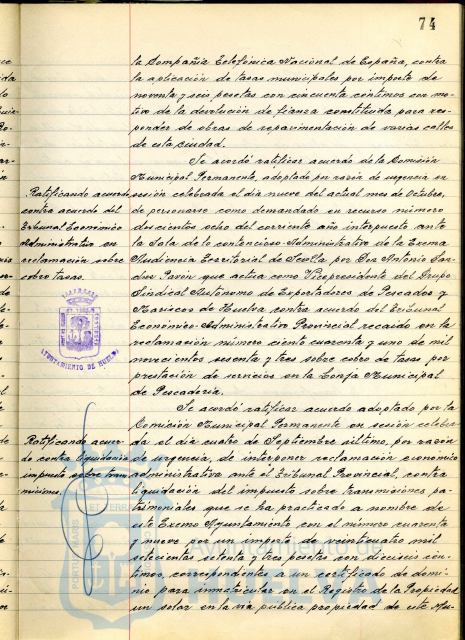 74
la Compañia Telefónica Nacional de España, contra
la aplicación de tasas municipales por importe de
noventa y seis pesetas con cincuenta céntimos con mo-
tivo de la devolución de fianza constituida para res-
ponder de obras de repavimentación de varias calles
de esta ciudad.
Se acordó ratificar acuerdo de la Comisión
Municipal Permanente, adoptado por razón de urgencia en
Ratificando acuerdo
contra acuerdo del
Tribunal Económico
Administrativo en
reclamación sobre
cobro tasas.
sesión celebrada el día nueve del actual mes de Octubre,
de personarse como demandado en recurso número
doscientos ocho del corriente año interpuesto ante
la Sala de lo contencioso Administrativo de la Excma
Audiencia Territorial de Sevilla por Don Antonio San-
Pavón que actúa como Vicepresidente del Grupo
Sindical Autónomo de Exportadores de Pescados y
Mariscos de Huelva contra acuerdo del Tribunal
Económico-Administrativo Provincial recaido en la
reclamación número ciento cuarenta y uno de mil
novecientos sesenta y tres sobre cobro de tasas por
prestación de servicios en la Lonja Municipal
de Pescadería.
AYUNTAMIENTO DE HUELVA
Se acordó ratificar acuerdo adoptado por la
Comisión Municipal Permanente en sesión celebra-
Ratificando acuer-
do contra liquidación
impuesto sobre tran
misiones.
da el día cuatro de Septiembre último, por razón
de urgencia, de interponer reclamación económico
administrativa ante el Tribunal Provincial, contra
liquidación del impuesto sobre transmisiones pa-
trimoniales que se ha practicado a nombre de
este Excmo Ayuntamiento con el número cuarenta
y nueve por un importe de veinticuatro mil
setecientas setenta y tres pesetas con dieciseis cén-
timos, correspondientes a un certificado de domi-
nio para inmatricular en el Registro de la Propiedad
un solar en la vía publica propiedad de este Mu-